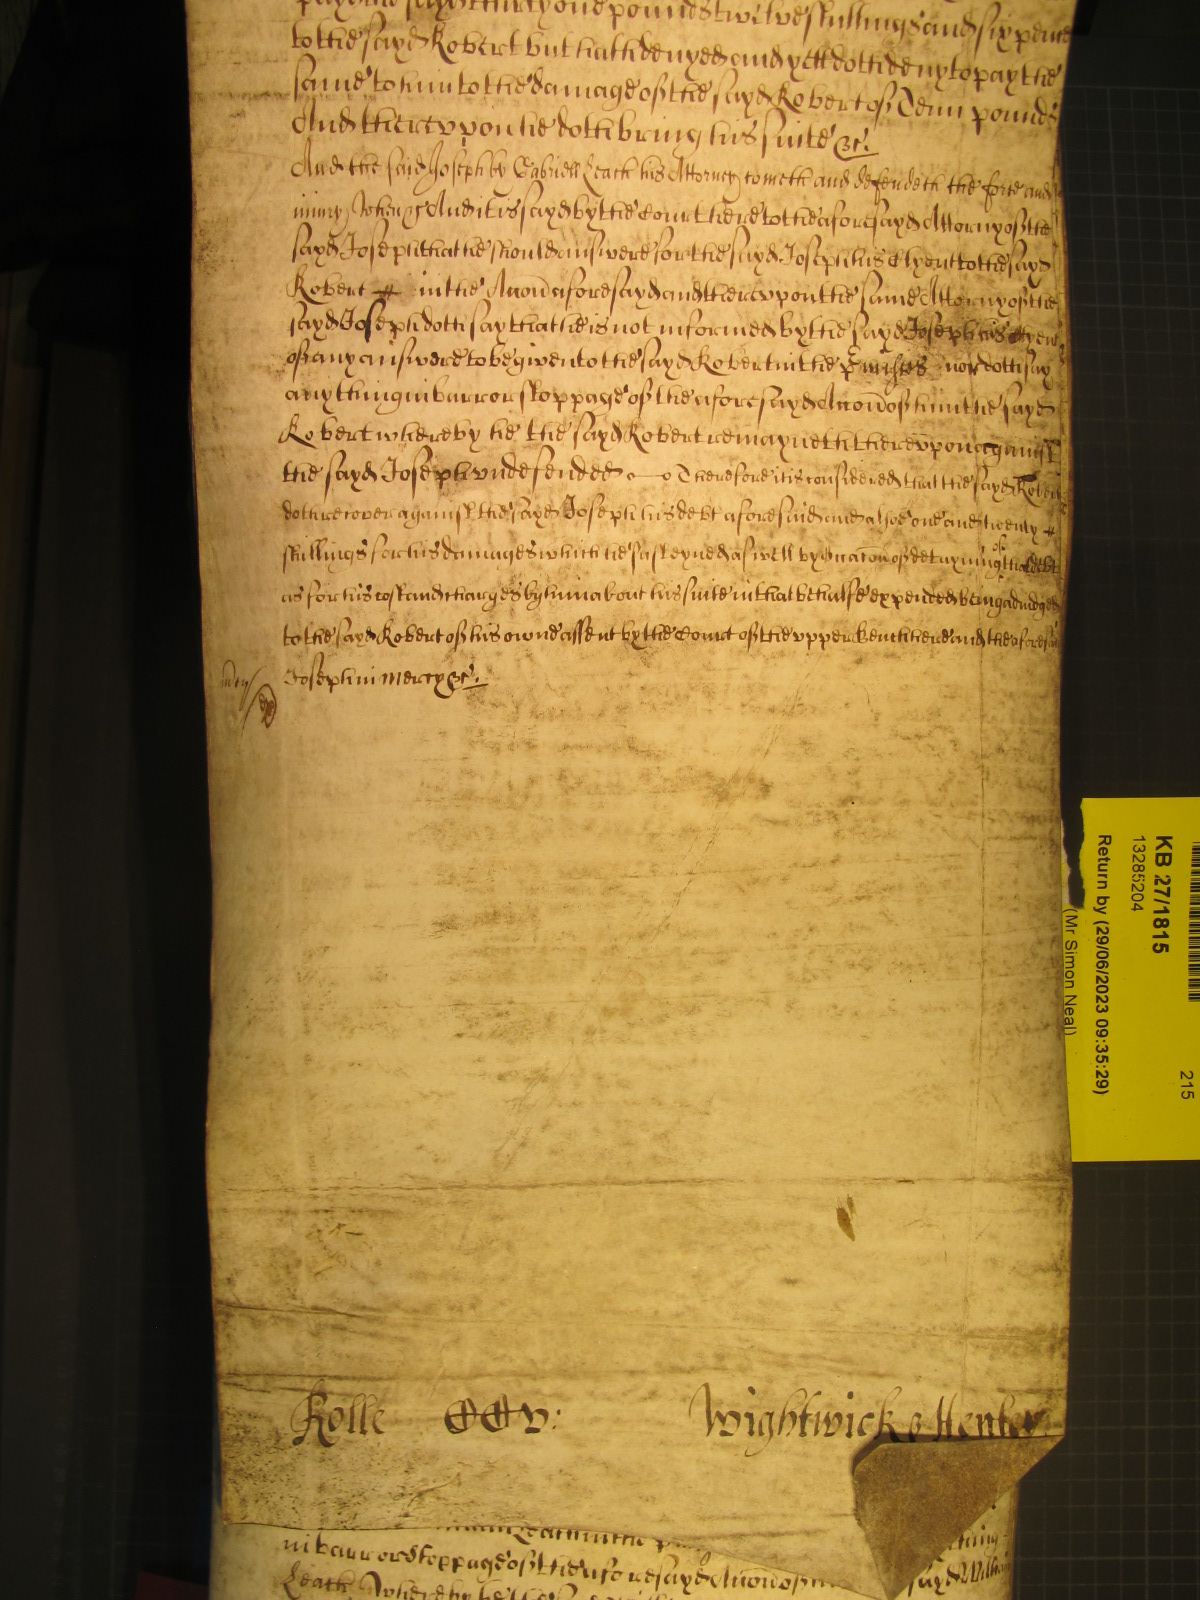 sayd thirty one pounds twelve shillings and six pence
to the sayd Robert but hath denyed and yett doth deny to pay the
same to him to the damage of the sayd Robert of Tenn pounds
And thereupon he doth bring his suite &c.
And the said Joseph by Gabriell Leach his Attorney cometh and defendeth the force and
injury when &c And it is sayd by the Court here to the aforesayd Attorny of the
sayd Joseph that he should answere for the sayd Joseph his Clyent to the sayd
Robert in the Accon aforesayd and thereupon the same Attorny of the
sayd Joseph doth say that he is not informed by the sayd Joseph his Clyent
of any answere to be given to the sayd Robert in the p'misses nor doth say
any thing in barr or stoppage of the aforesayd Accon of him the sayd
Robert whereby he the sayd Robert remayneth thereupon against
the sayd Joseph undefended Therefore it is considered that the sayd Robert
doth recover against the sayd Joseph his debt aforesaid and alsoe one and twenty
shillings for his damages which he susteyned aswell by occacon of detayning of that debt
as for his cost and charges by him about his suite in that behalfe expended being adiudged
to the sayd Robert of his owne assent by the Court of the upper bench here and the aforesaid
Joseph in mercy &c.
Rolle CCV: Wightwick & Henley
in barr or stoppage of the aforesayd Accon of sayd William
Leach Whereby he the
KB 27/1815
13285204
Return by (29/06/2023 09:35:29)
(Mr Simon Neal)
215